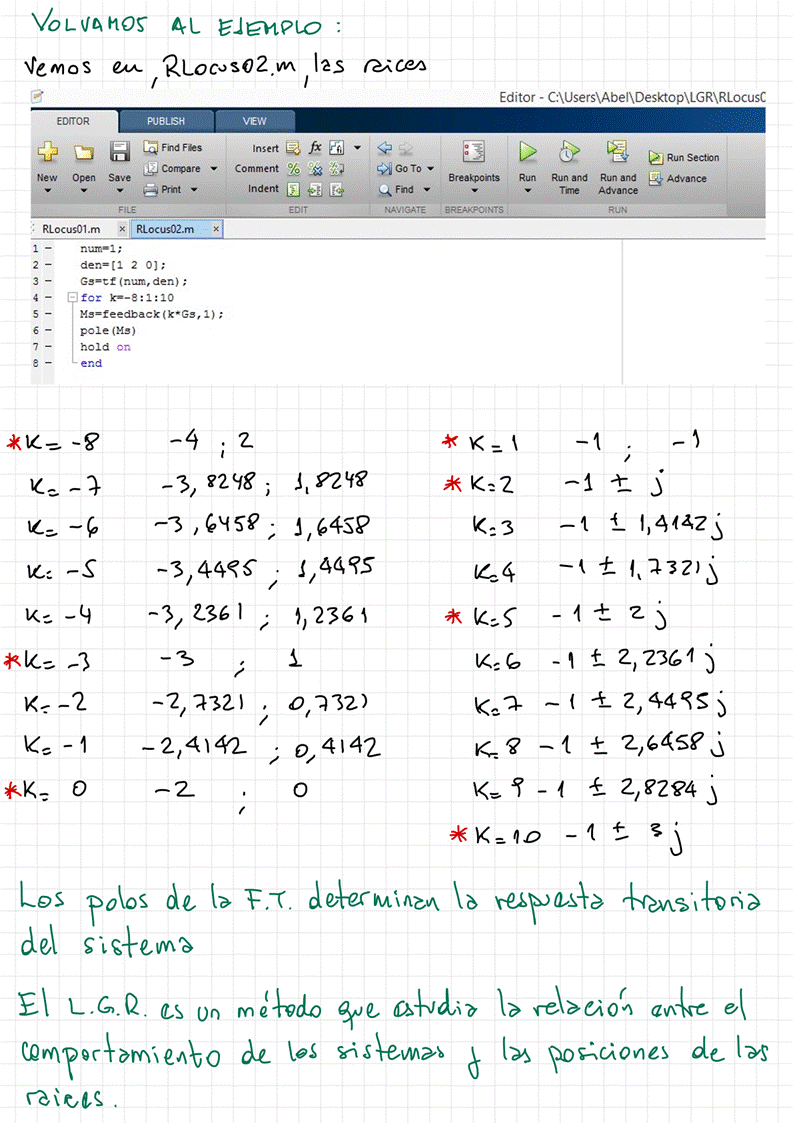 VOLVAMOS AL EJEMPLO :
Vemos en, RLocus02.m, las raices
Editor - C:\Users\Abel\Desktop\LGR\RLocus0
EDITOR PUBLISH VIEW
New Open Save Find Files Compare Print Insert fx Comment % Indent Go To Find Breakpoints Run Run and Time Run and Advance Run Section Advance
FILE EDIT NAVIGATE BREAKPOINTS RUN
RLocus01.m × RLocus02.m ×
1 – num=1;
2 – den=[1 2 0];
3 – Gs=tf(num,den);
4 – for k=-8:1:10
5 – Ms=feedback(k*Gs,1);
6 – pole(Ms)
7 – hold on
8 – end
*K= -8 -4 ; 2
K= -7 -3,8248 ; 1,8248
K= -6 -3,6458 ; 1,6458
K= -5 -3,4495 ; 1,4495
K= -4 -3,2361 ; 1,2361
*K= -3 -3 ; 1
K= -2 -2,7321 ; 0,7321
K= -1 -2,4142 ; 0,4142
*K= 0 -2 ; 0
* K=1 -1 ; -1
* K=2 -1 ± j
K=3 -1 ± 1,4142j
K=4 -1 ± 1,7321j
* K=5 -1 ± 2j
K=6 -1 ± 2,2361j
K=7 -1 ± 2,4495j
K=8 -1 ± 2,6458j
K=9 -1 ± 2,8284j
* K=10 -1 ± 3j
Los polos de la F.T. determinan la respuesta transitoria
del sistema
El L.G.R. es un método que estudia la relación entre el
comportamiento de los sistemas y las posiciones de las
raices.